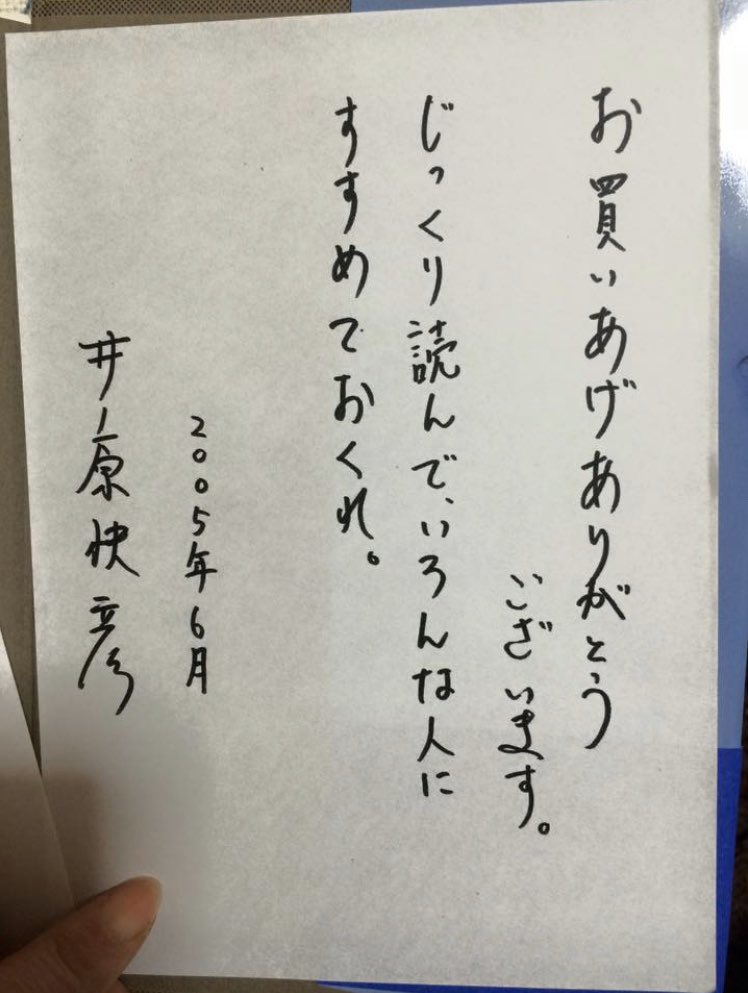 お買いあげありがとう
ございます。
じっくり読んで、いろんな人に
すすめておくれ。
2005年6月
井ノ原快彦